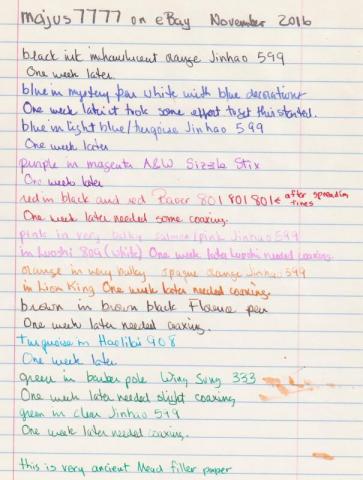 majus7777 on eBay November 2016
black ink in translucent orange Jinhao 599
One week later
blue in mystery pen white with blue decorations
One week later it took some effort to get this started.
blue in light blue/turquoise Jinhao 599
One week later
purple in magenta A&W Sizzle Stix
One week later
red in black and red Baoer 801 801 801 ← after spreading tines
One week later needed some coaxing.
pink in very bulky salmon/pink Jinhao 599
in Luoshi 809 (white) One week later Luoshi needed coaxing.
orange in very bulky opaque orange Jinhao 599
in Lion King One week later needed coaxing.
brown in brown black Florence pen
One week later needed coaxing.
turquoise in Haolibai 908
One week later
green in barber pole Wing Sung 333
One week later needed slight coaxing
green in clear Jinhao 599
One week later needed coaxing.
this is very ancient Mead filler paper